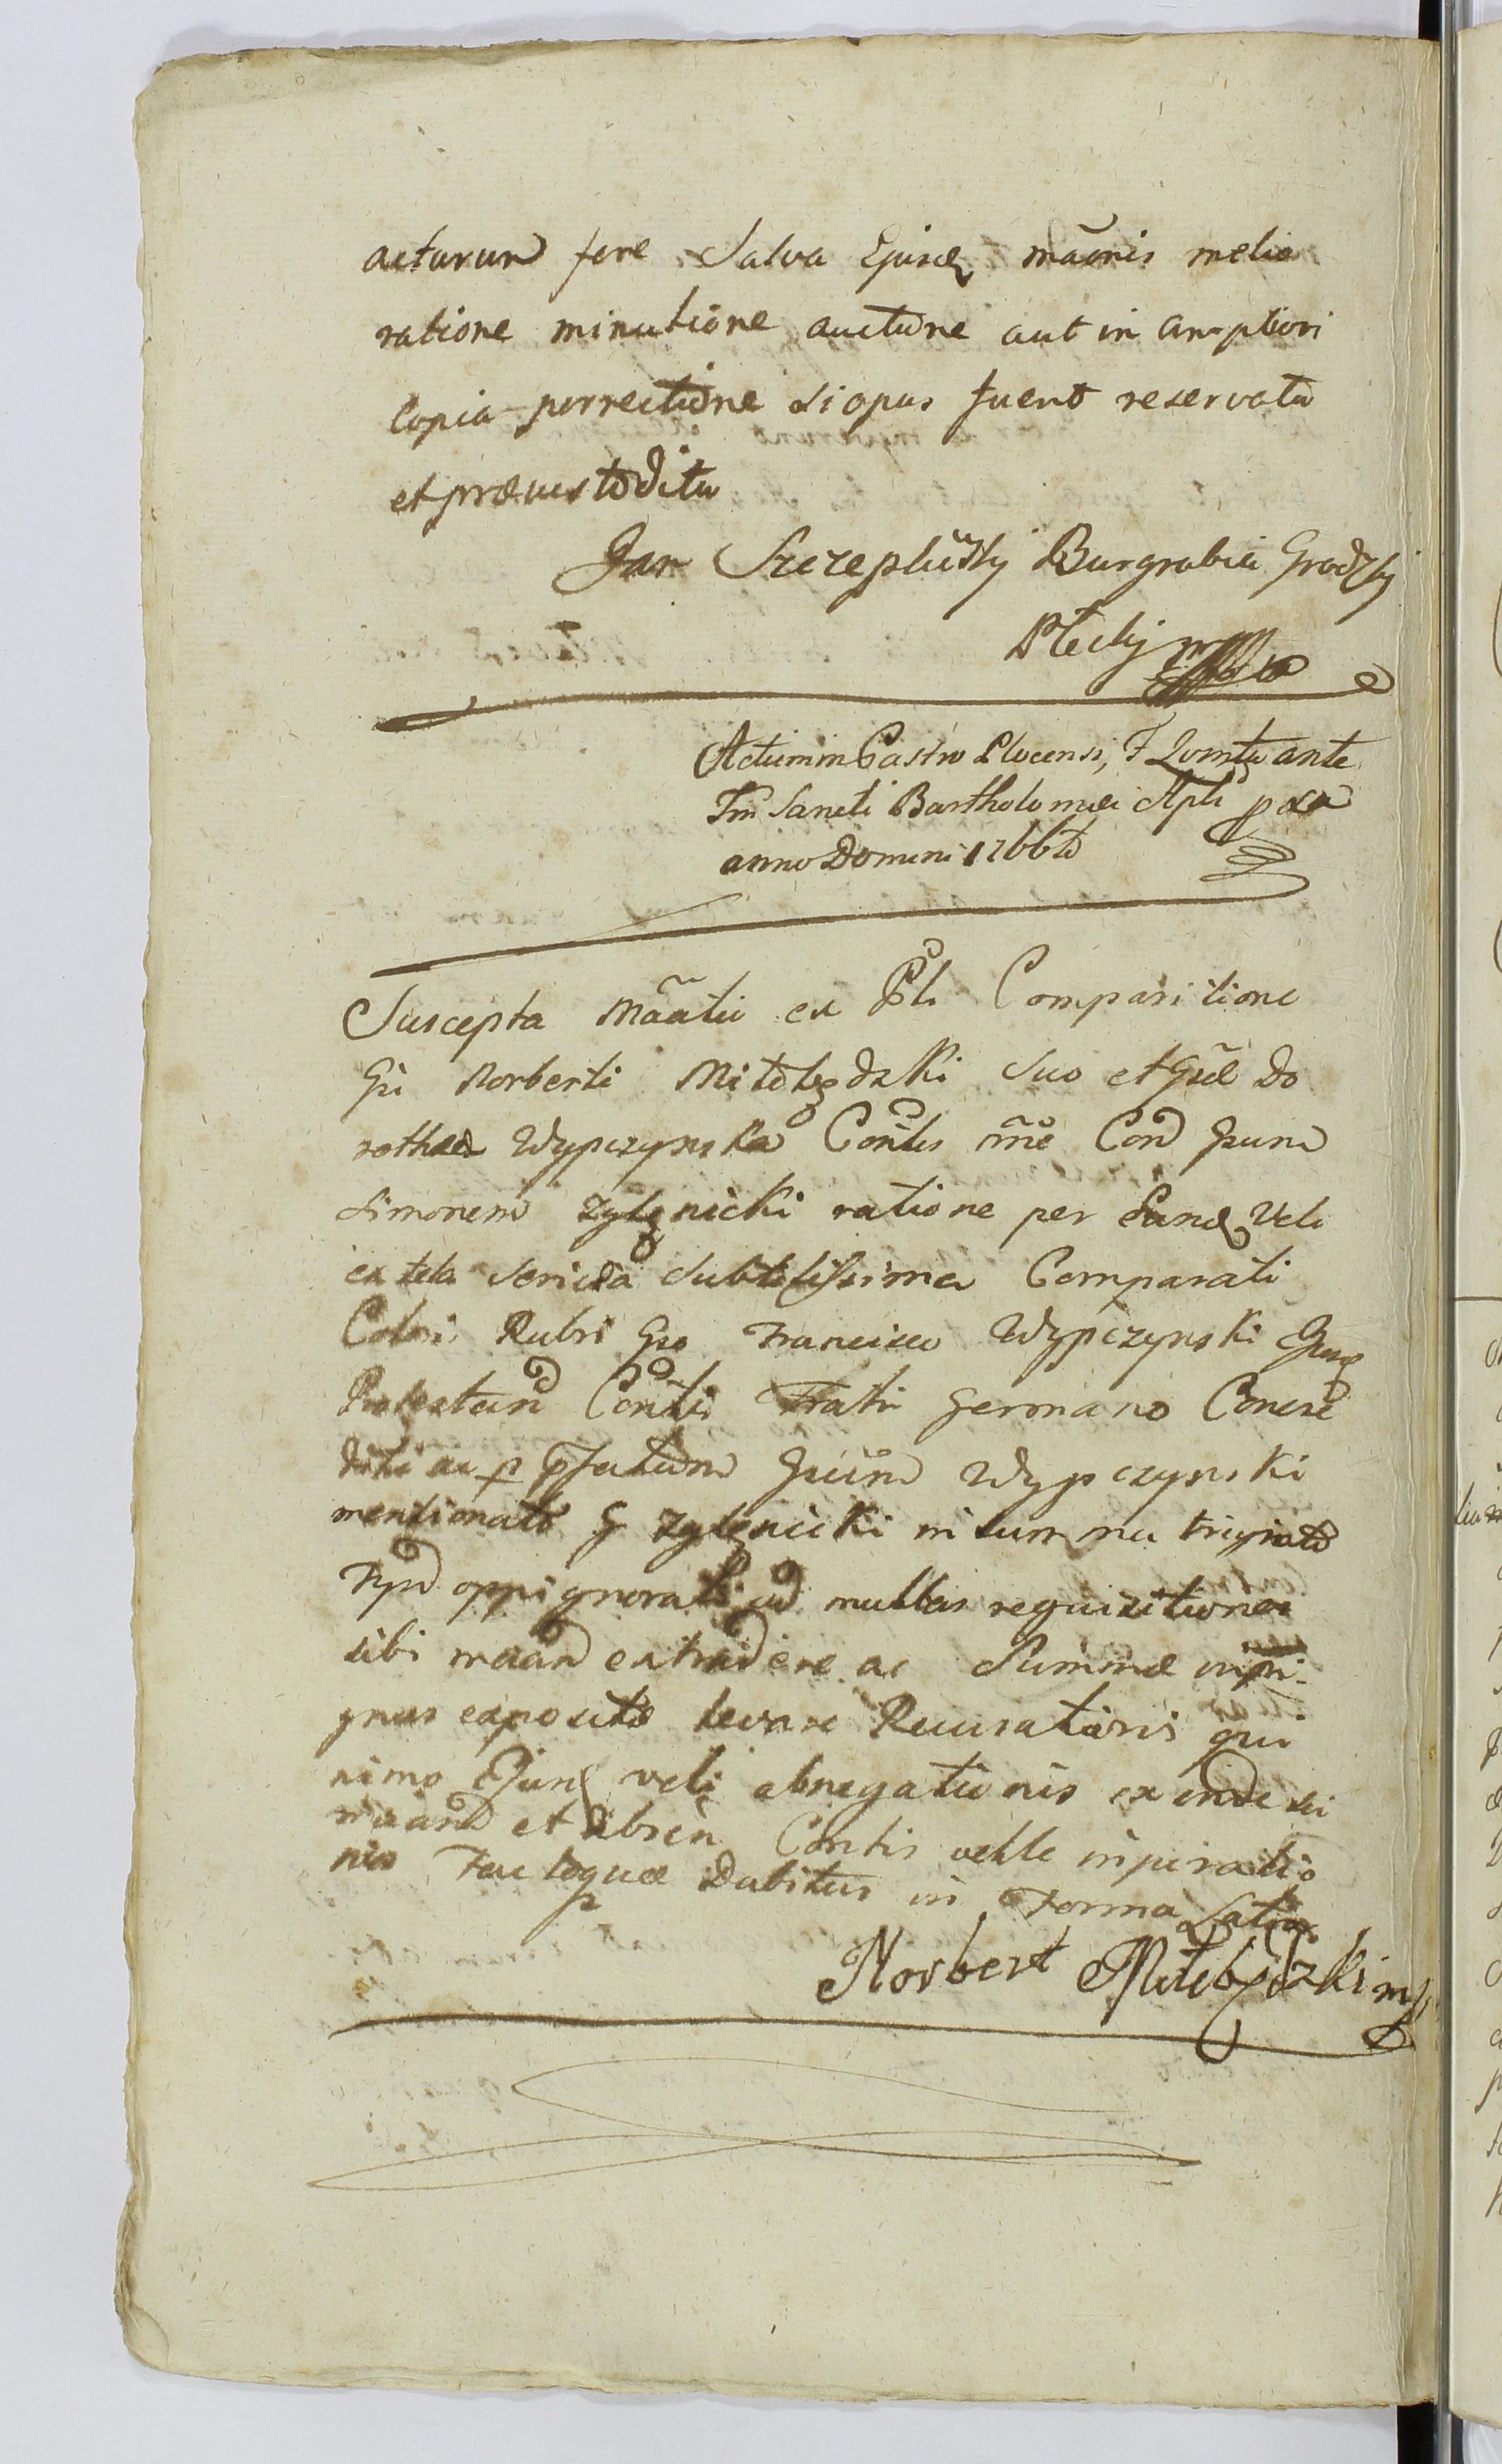 acturum fore Salva Ejusd mãonis melio
ratione minutione auctione aut in ampliori
Copia porrectione si opus fuerit reservata
et præcustodita
Jan Szczepliński Burgrabia Grodzky
Płocky
Actum in Castro Plocensi, F. Domĩca ante
Fm̃ Sancti Bartholomæi Apli pxa
anno Domini 1766to
Suscepta Mãatu ex Pli Comparitione
Gũ Norberti Mitolędzki suo et Gsæ Do
rothæa Wypczynska Contis nñe Con Gsum
Simonem Zylęnicki ratione per Eund Veli
ex tela sericea subtilissima Comparati
Colori Rubri Gso Francisco Wypczynski Gsæ
Protestan Contis Fratri Germano Conces
diti ac p pfatum Gsum Wypczynski
mentionato G Zylęnicki in summa triginta
Fpo oppignorati ad multas requisitiones
sibi maan extradere ac Summæ in pi
gnus exposita levare Recusationis qui
nimo Ejusd veli abnegationis ex inde sui
maan et Contis velle
nis Facleque Dabitur in Forma Latiori
Norbert